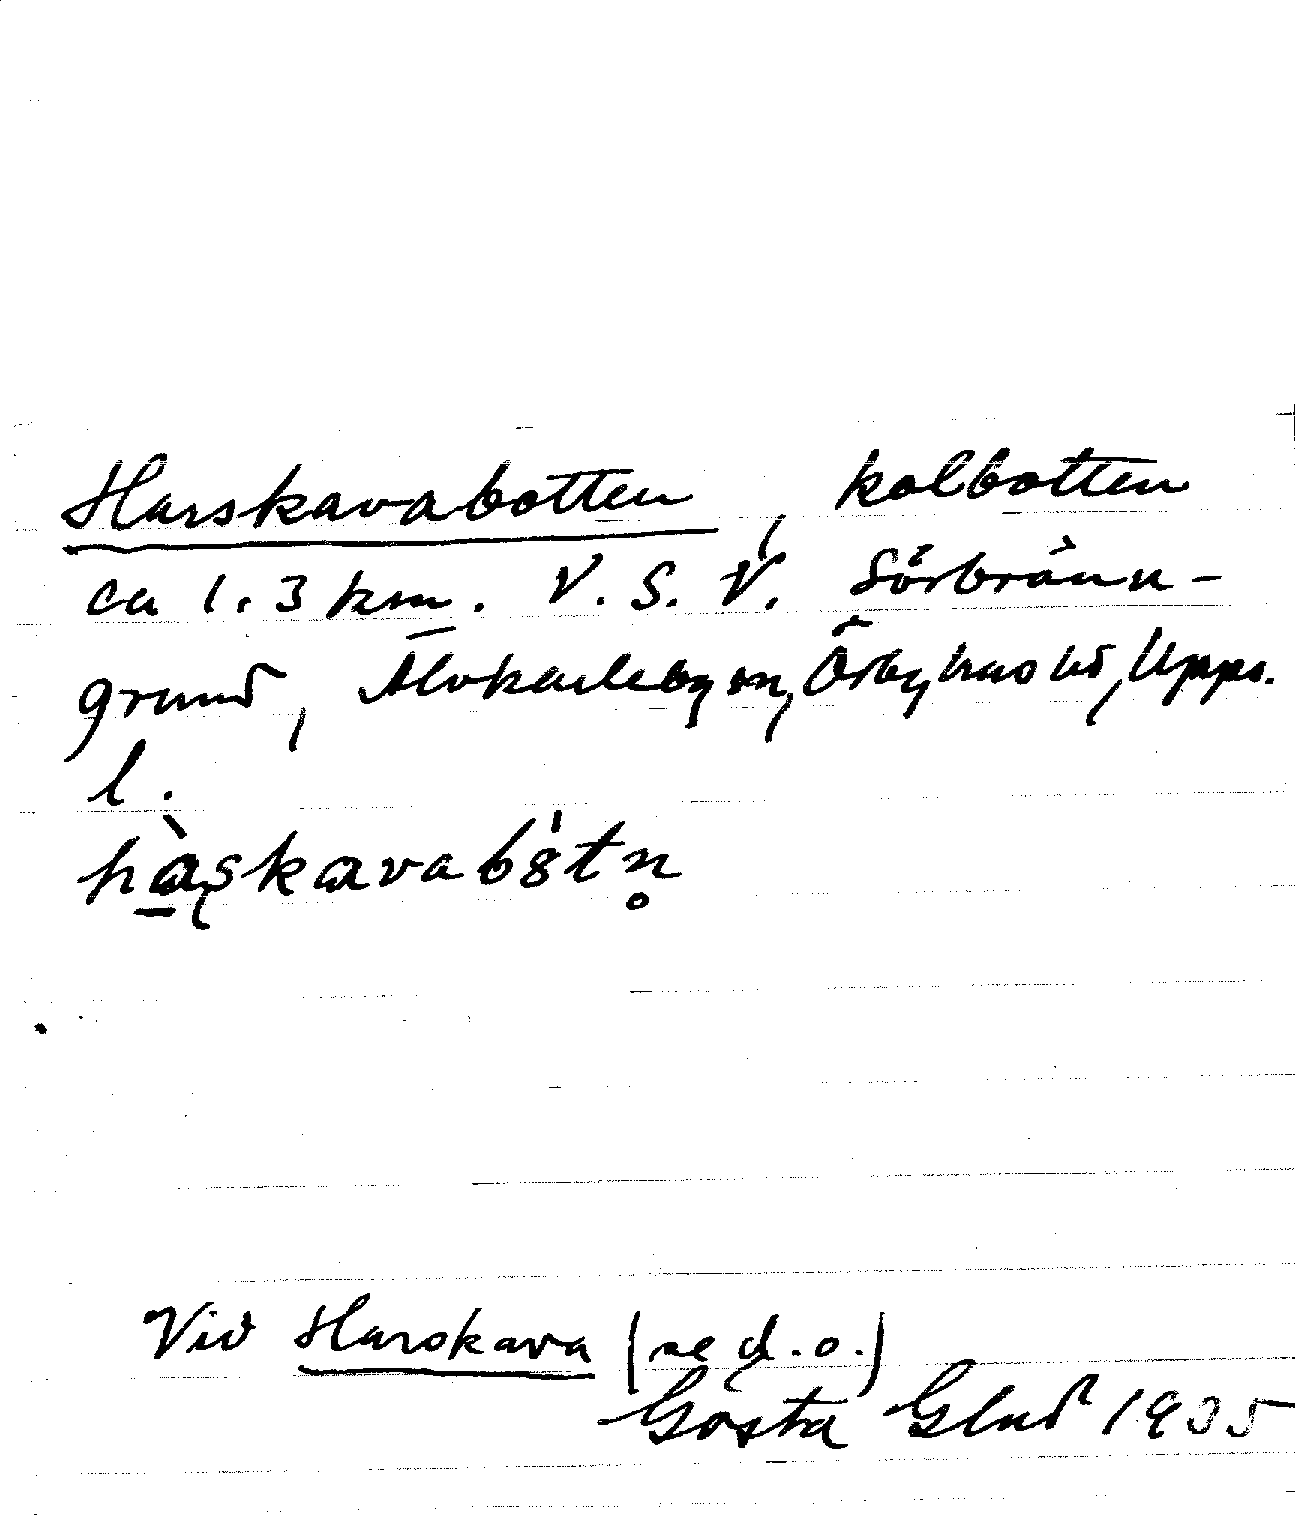 Harskavabotten, kolbotten
ca 1.3 km. V.S.V. Sörbränn-
grund, Älvkarleby sn, Örbyhus hd, Upps.
l.
hàskavabötn
Vid Harskava (se d.o.)
Gösta Glad 1935